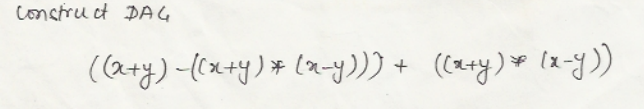 Construct DAG
((x+y) -((x+y) * (x-y))) + ((x+y) * (x-y))